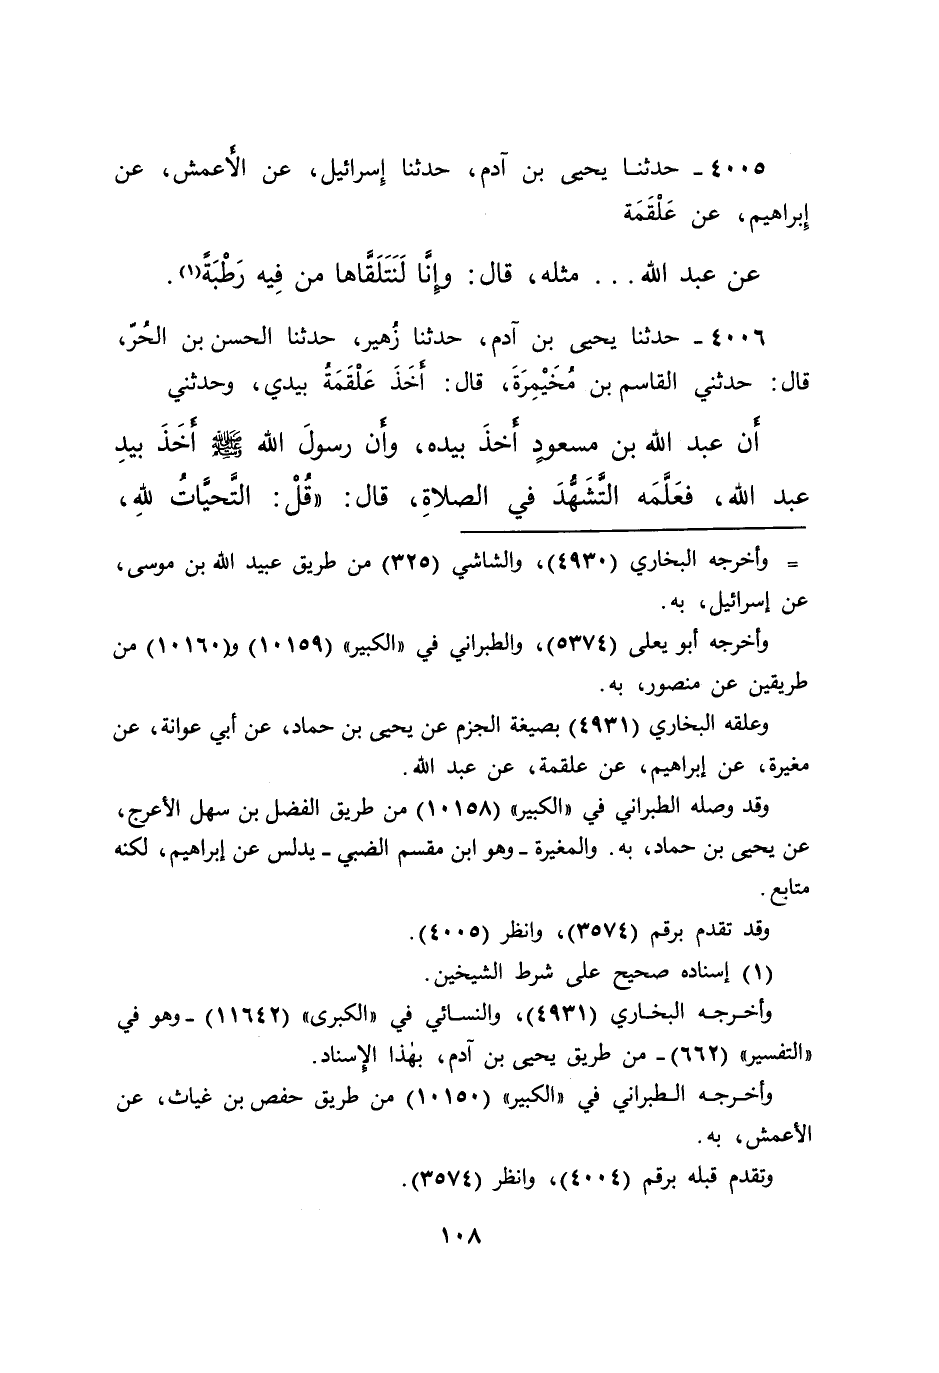 ٤٠٠٥ ـ حدثنا يحيى بن آدم، حدثنا إسرائيل، عن الأَعمش، عن
إبراهيم، عن عَلْقَمَة
عن عبد الله . . . مثله، قال: وإِنَّا لَنَتَلَقَّاها من فِيه رَطْبَةً(١).
٤٠٠٦ ـ حدثنا يحيى بن آدم، حدثنا زُهير، حدثنا الحسن بن الحُرّ،
قال: حدثني القاسم بن مُخَيْمِرَةَ، قال: أَخَذَ عَلْقَمَةُ بيدي، وحدثني
أَن عبد الله بن مسعودٍ أَخذَ بيده، وأَن رسولَ الله ﷺ أَخَذَ بيدِ
عبد الله، فعَلَّمَه التَّشَهُّدَ في الصلاةِ، قال: «قُلْ: التَّحيَّاتُ للهِ،
= وأخرجه البخاري (٤٩٣٠)، والشاشي (٣٢٥) من طريق عبيد الله بن موسى،
عن إسرائيل، به.
وأخرجه أبو يعلى (٥٣٧٤)، والطبراني في «الكبير» (١٠١٥٩) و(١٠١٦٠) من
طريقين عن منصور، به.
وعلقه البخاري (٤٩٣١) بصيغة الجزم عن يحيى بن حماد، عن أبي عوانة، عن
مغيرة، عن إبراهيم، عن علقمة، عن عبد الله.
وقد وصله الطبراني في «الكبير» (١٠١٥٨) من طريق الفضل بن سهل الأعرج،
عن يحيى بن حماد، به. والمغيرة ـ وهو ابن مقسم الضبي ـ يدلس عن إبراهيم، لكنه
متابع.
وقد تقدم برقم (٣٥٧٤)، وانظر (٤٠٠٥).
(١) إسناده صحيح على شرط الشيخين.
وأخرجه البخاري (٤٩٣١)، والنسائي في «الكبرى» (١١٦٤٢) ـ وهو في
«التفسير» (٦٦٢) ـ من طريق يحيى بن آدم، بهٰذا الإسناد.
وأخرجه الطبراني في «الكبير» (١٠١٥٠) من طريق حفص بن غياث، عن
الأعمش، به.
وتقدم قبله برقم (٤٠٠٤)، وانظر (٣٥٧٤).
١٠٨